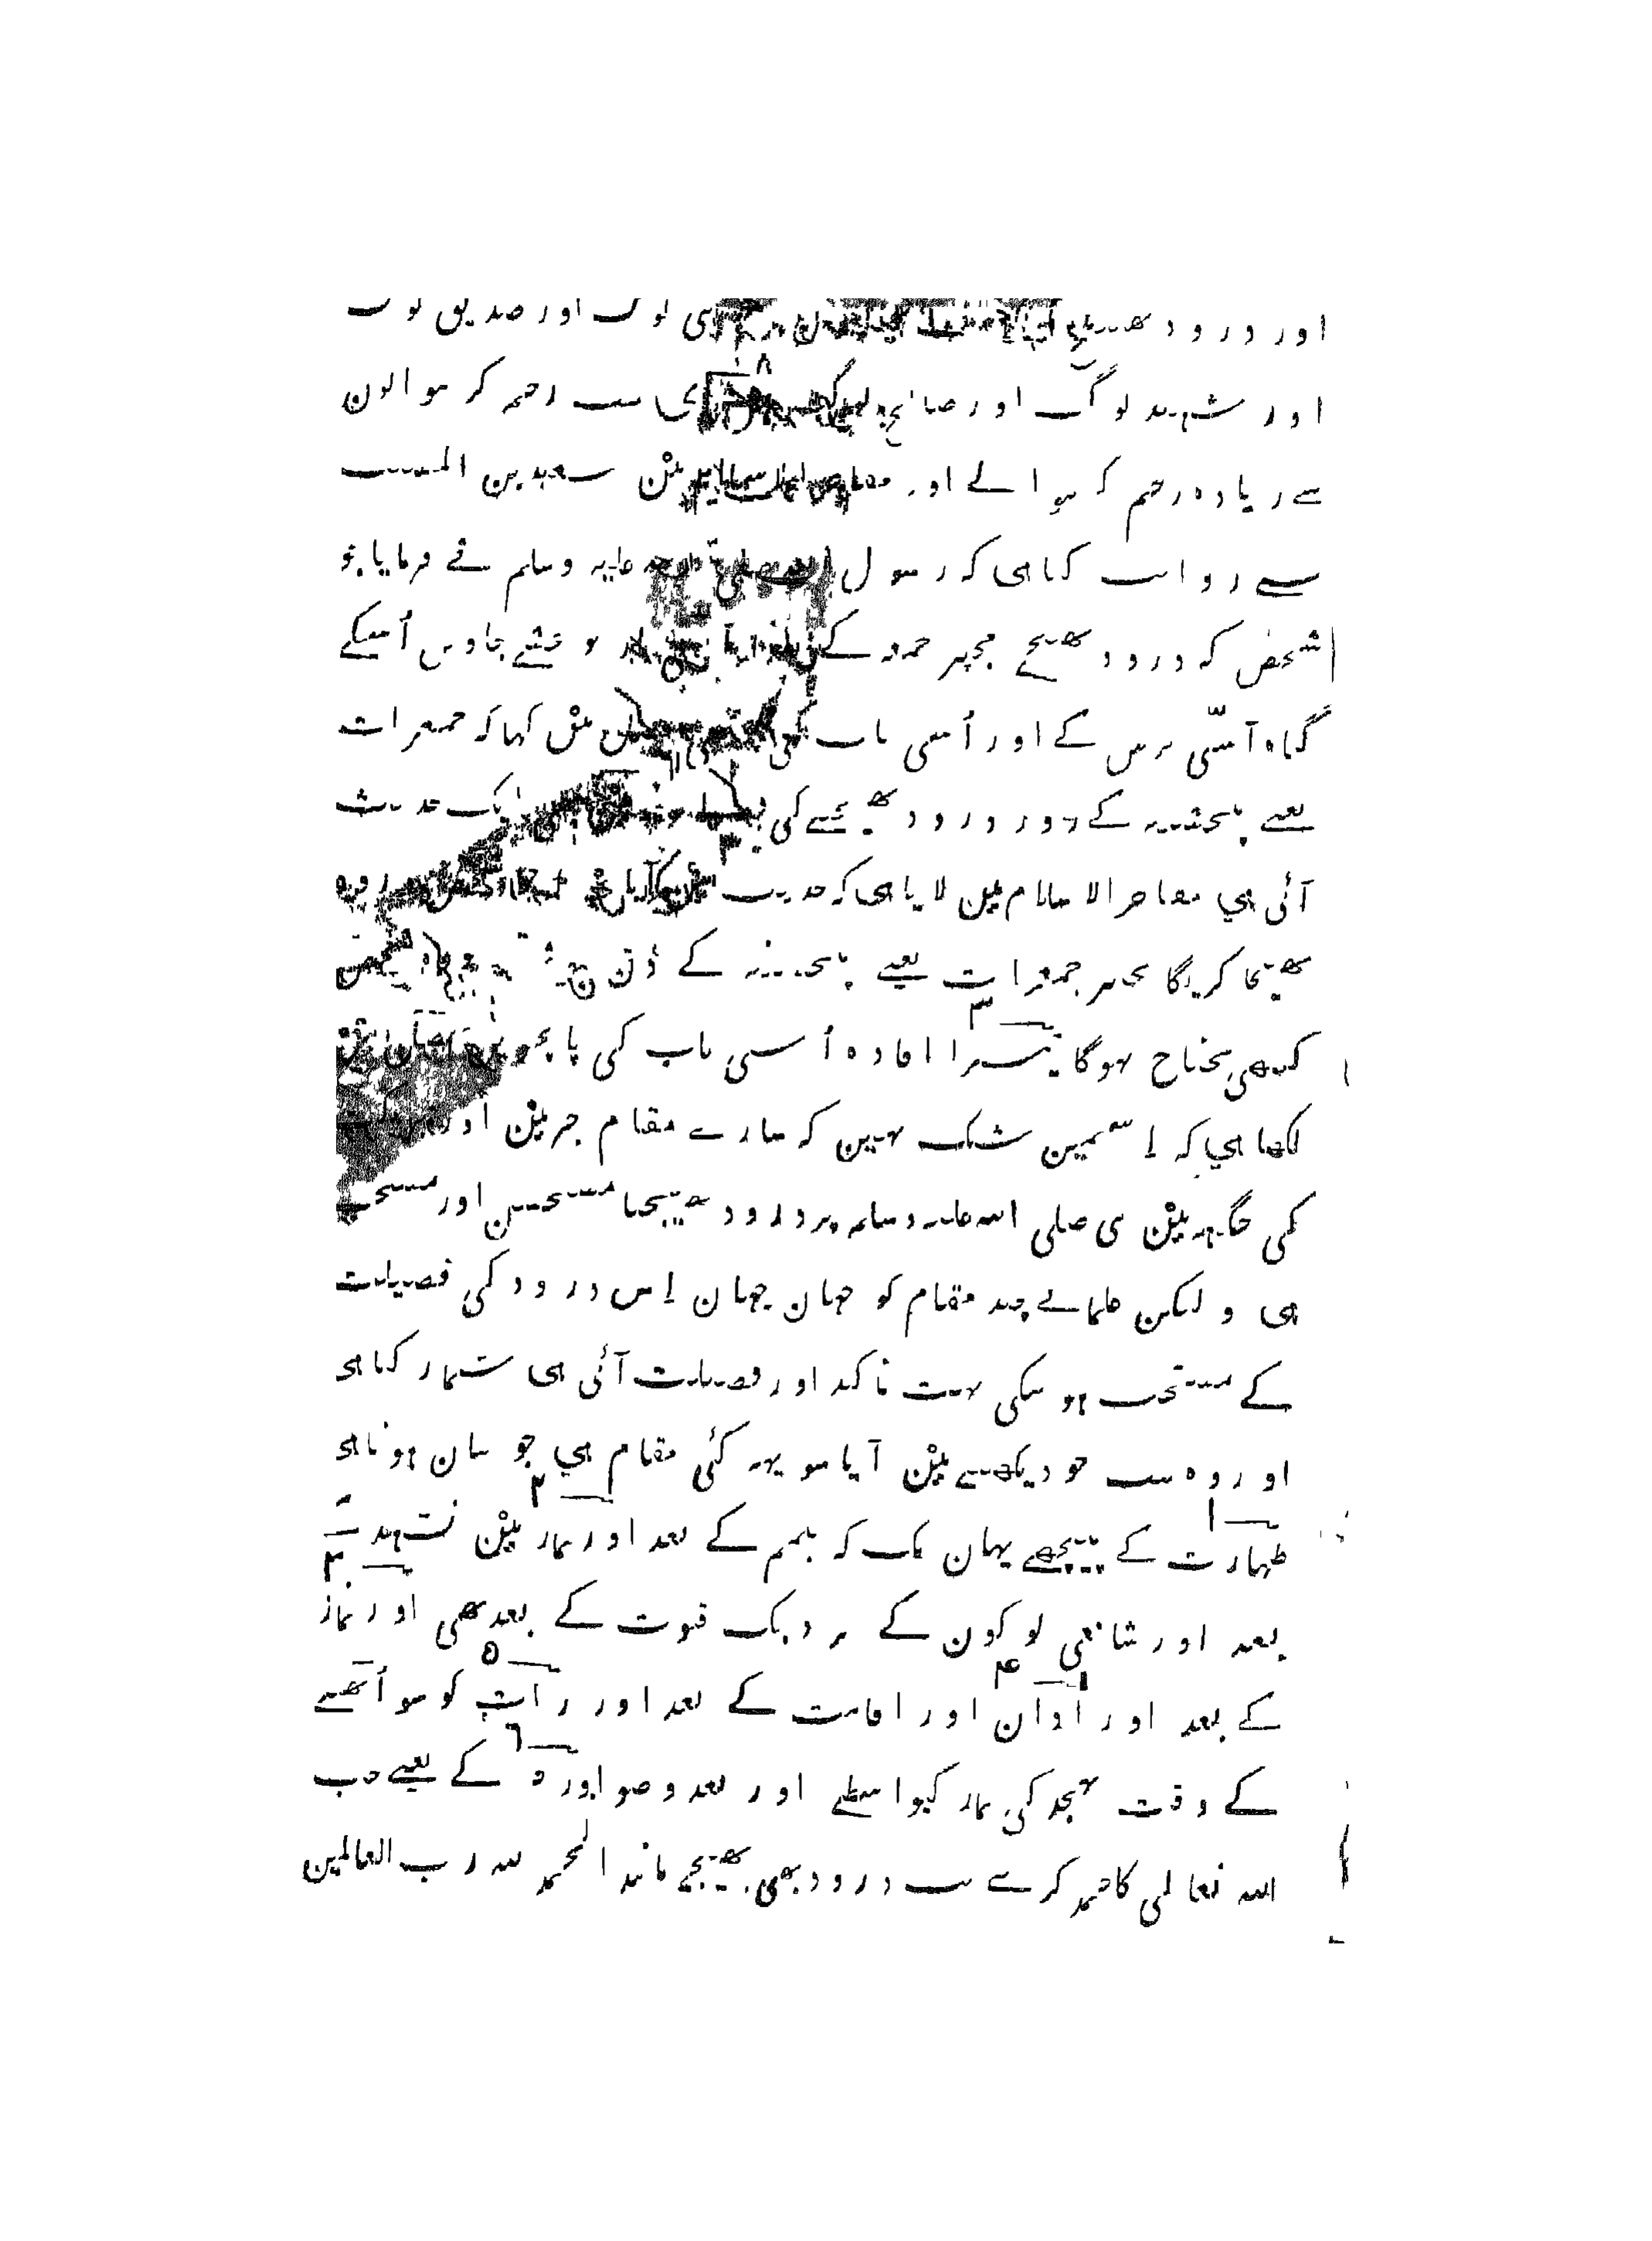 اور درود بھیجے نبی لوگ اور صدیق لوگ
اور شہید لوگ اور صالح لوگ ای سب رحم کرنیوالون
سے زیادہ رحم کرنیوالے اور میں سعید بن المسیب
سے روایت کیا ہی کہ رسول اللہ صلی اللہ علیہ وسلم نے فرمایا جو
شخص کہ درود بھیجے مجھپر جمعہ کے بخشے جاوین اُسکے
گناہ آسّی برس کے اور اُسی باب کی میں کہا کہ جمعرات
یعنے پنجشنبہ کے روز درود بھیجنے کی ایک حدیث
آئی ہی مفاخر الاسلام مین لایا ہی کہ حدیث مین آیا
بھیجا کریگا مجھپر جمعرات یعنے پنجشنبہ کے دن
کبھی محتاج نہوگا تیسرا افادہ اُسی باب کی پانچوین
لکھا ہی کہ اِسمین شک نہین کہ سارے مقام خیر مین اور
کی جگہہ مین نبی صلی اللہ علیہ وسلم پر درود بھیجنا مستحسن اور مستحب
ہی و لیکن علمانے چند مقام کو جہان جہان اِس درود کی فضیلت
کے مستحب ہونیکی بہت تاکید اور فضیلت آئی ہی شمار کیا ہی
اور وہ سب جو دیکھنے مین آیا سو یہہ کئی مقام ہی جو بیان ہوتا ہی
طہارت کے پیچھے یہان تک کہ تیمم کے بعد اور نماز مین تشہد کے
بعد اور شافعی لوگون کے نزدیک قنوت کے بعد بھی اور نماز
کے بعد اور اذان اور اقامت کے بعد اور رات کو سو اُٹھنے
کے وقت تہجد کی نماز کیواسطے اور بعد وضو اور کے یعنے جب
اللہ تعالی کا حمد کرے تب درود بھی بھیجے مانند الحمد للہ رب العالمین